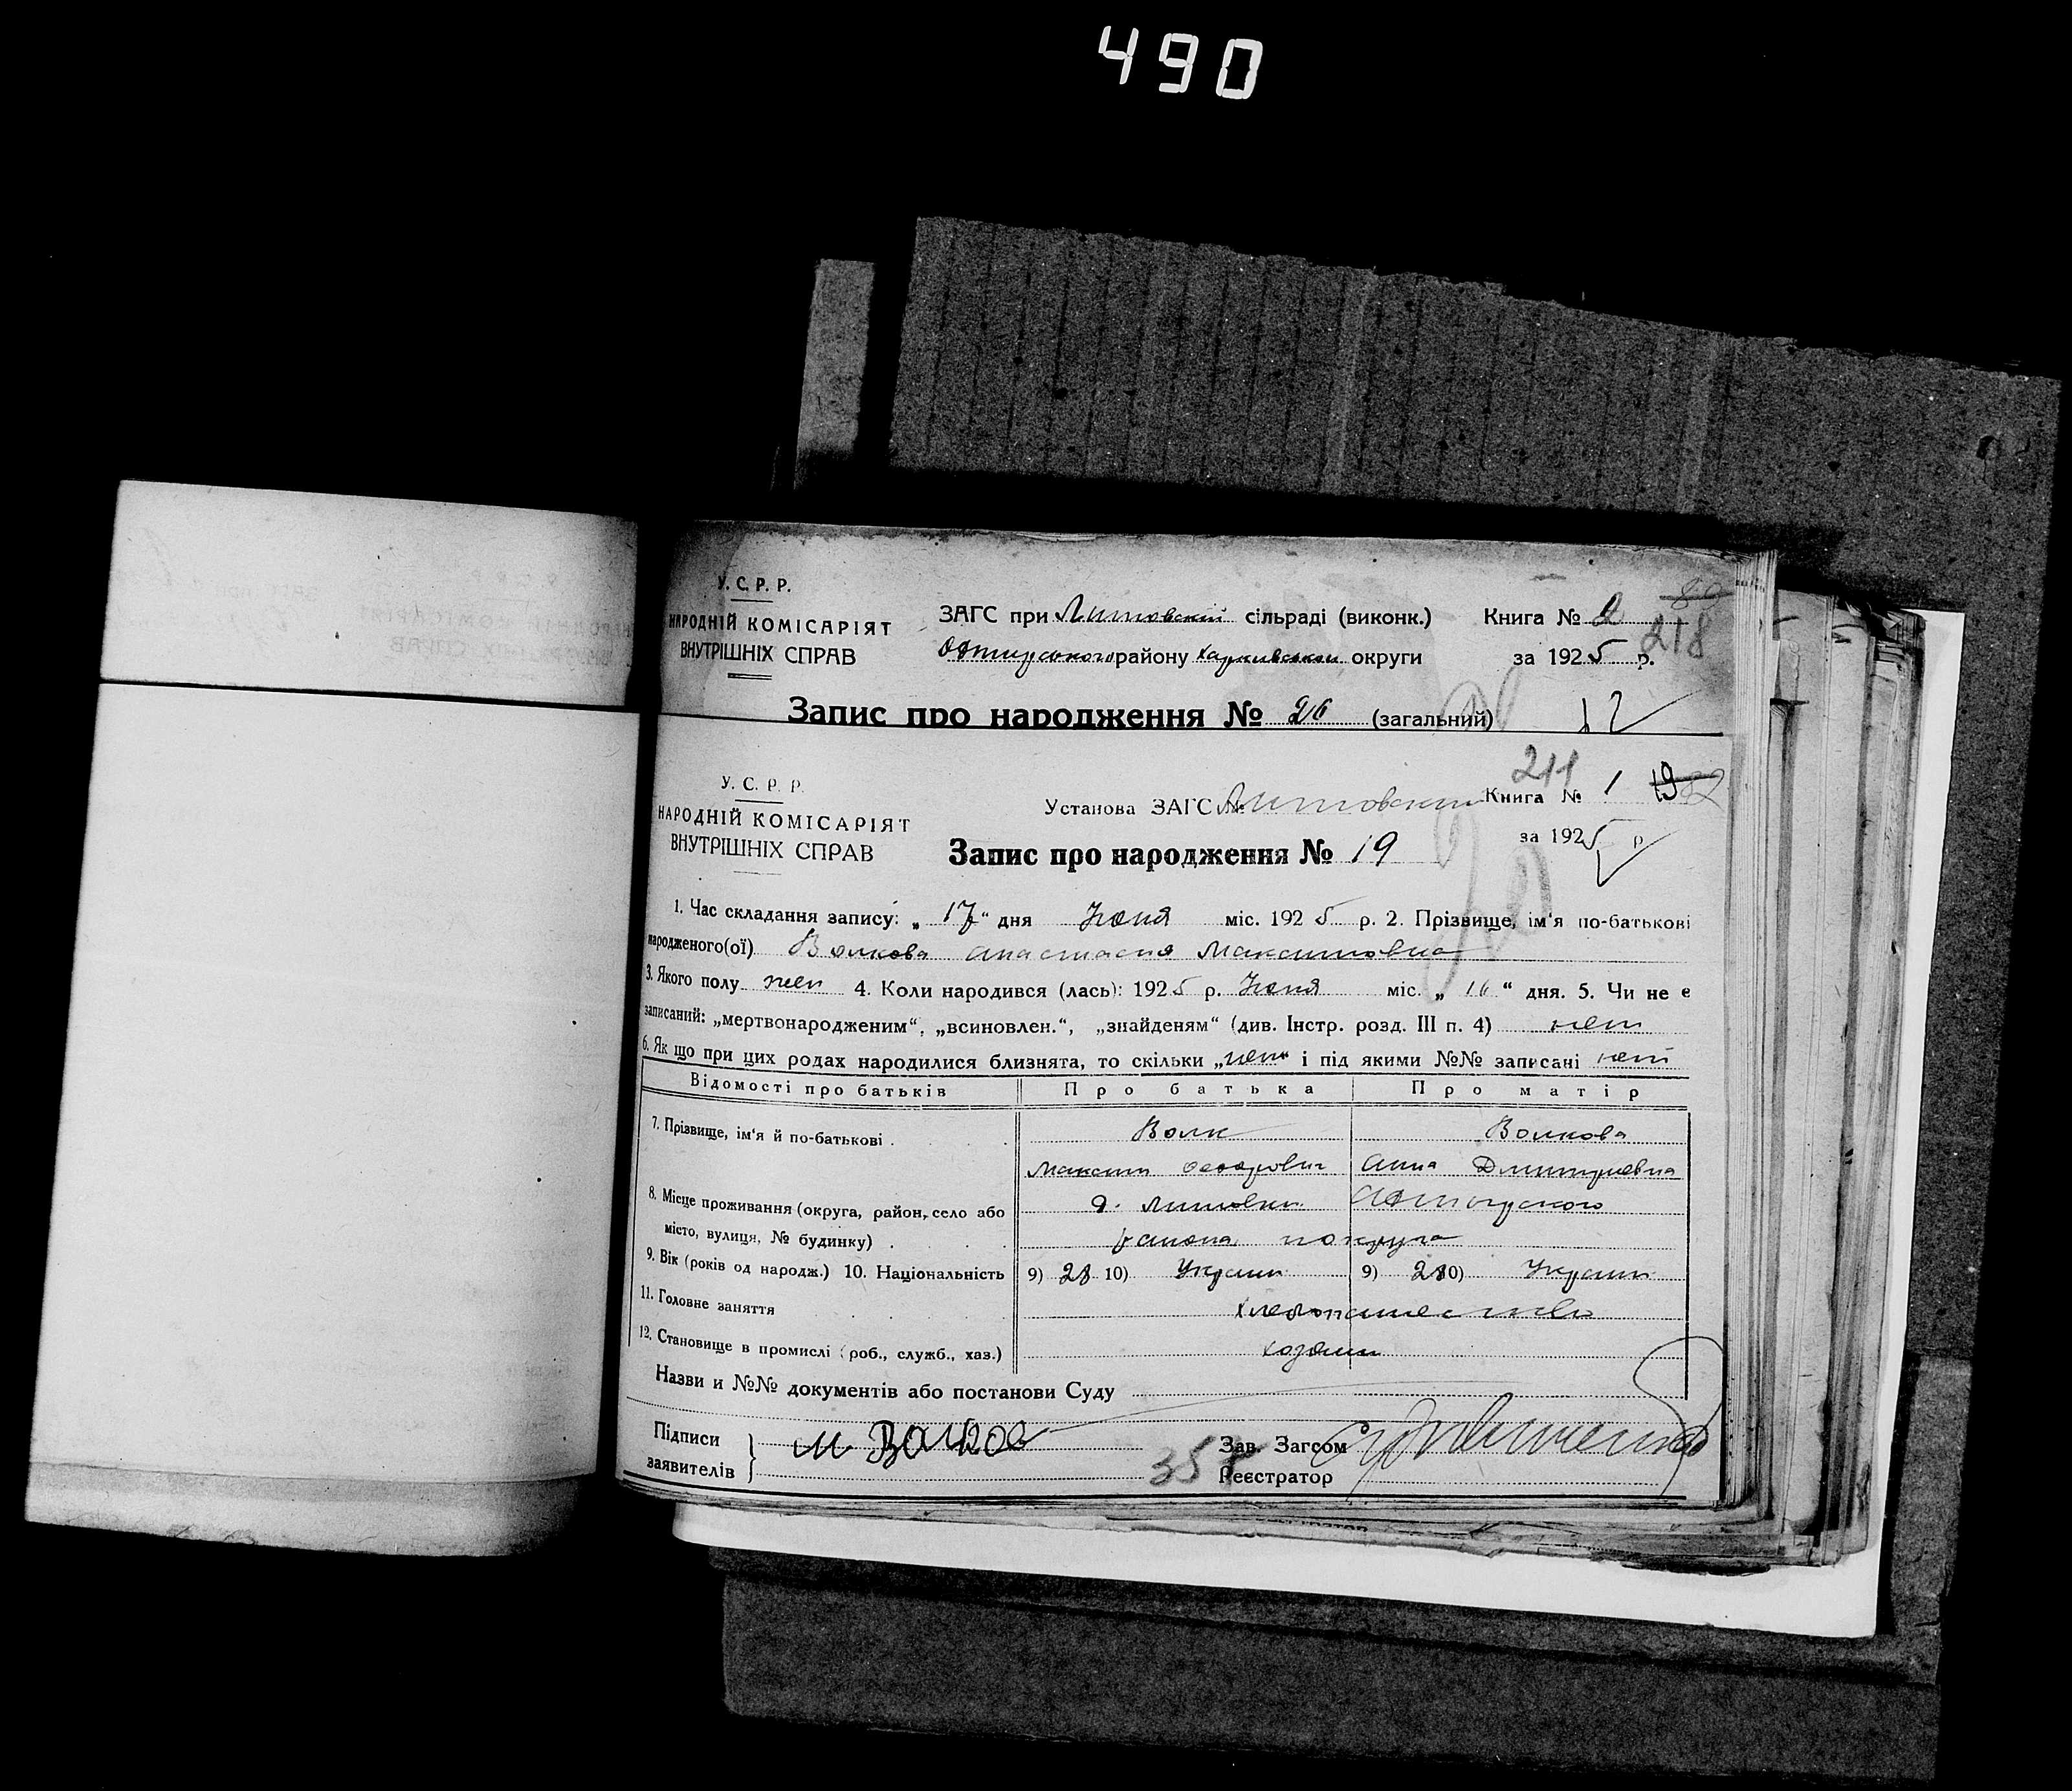 490
У. С. Р. Р.
НАРОДНІЙ КОМІСАРІЯТ
ВНУТРІШНІХ СПРАВ
ЗАГС при Литовскій сільраді (виконк.)
району Харківскои округи
Книга № 2
за 1925 р.
218
Запис про народження № 26 (загальний)
12
У. С. Р. Р.
НАРОДНІЙ КОМІСАРІЯТ
ВНУТРІШНІХ СПРАВ
211
Установа ЗАГС № Литовский
Книга № 1
за 1925 р
Запис про народження № 19
1. Час складання запису: „ 17 “ дня Июня міс. 1925 р. 2. Прізвище, ім'я по-батькові
народженого(ої) Волкова Анастасия Максимовна
3. Якого полу жен 4. Коли народився (лась): 1925 р. Июня міс. „ 16 “ дня. 5. Чи не є
записаний: „мертвонародженим“, „всиновлен.“, „знайденям“ (див. Інстр. розд. III п. 4) нет
6. Як що при цих родах народилися близнята, то скільки „нет“ і під якими №№ записані нет
Відомості про батьків Про батька Про матір
7. Прізвище, ім'я й по-батькові . Волк Волкова
Максим Федорович Анна Дмитриевна
8. Місце проживання (округа, район, село або
місто, вулиця, № будинку) .
9. Вік (років од народж.) 10. Національність 9) 28 10) Украин 9) 28 10) Украин
11. Головне заняття хлебопашество
12. Становище в промислі (роб., служб., хаз.) хозяин
Назви и №№ документів або постанови Суду
Підписи
заявителів
М Волков
357
Зав. Загсом
Реєстратор